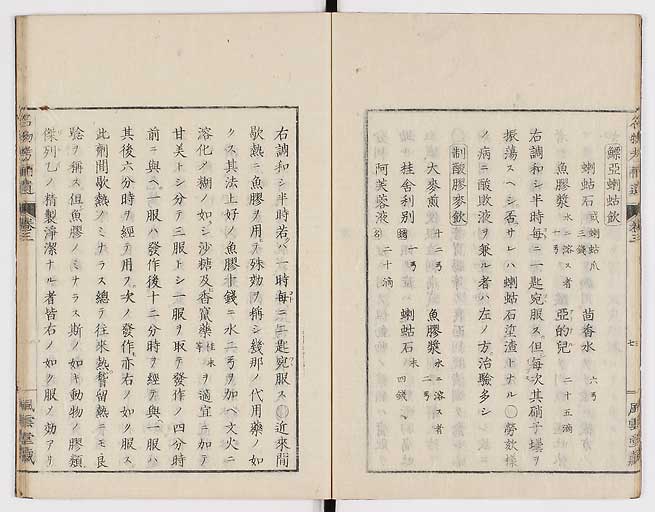 鰾亞蜊蛄飲
蜊蛄石 或蜊蛄爪 三錢 茴香水 六弓
魚膠漿 水ニ溶ス者 一弓 亞的兒 二十五滴
右調和シ半時每ニ一匙宛服ス但每次其硝子壜ヲ
振蕩スヘシ否サレハ蜊蛄石埿渣トナル○勞欬樣
ノ病ニ酸敗液ヲ兼ル者ハ左ノ方治驗多シ
制酸膠麥飲
大麥煎 十二弓 魚膠漿 水ニ溶ス者 二弓
桂舍利別 一弓 蜊蛄石 末 四錢
阿芙蓉液 二十滴
七
風雲堂藏
右調和シ半時若ハ一時每ニ二匙宛服ス○近來間
歇熱ニ魚膠ヲ用テ殊効ヲ稱シ幾那ノ代用藥ノ如
クス其法上好ノ魚膠十錢ニ水二弓ヲ加ヘ文火ニ
溶化シ糊ノ如シ沙糖及香竄藥 桂水等 ヲ適宜ニ加テ
甘美トシ分テ三服トシ一服ヲ取テ發作ノ四分時
前ニ與ヘ一服ハ發作後十二分時ヲ經テ與一服ハ
其後六分時ヲ經テ用フ次ノ發作亦右ノ如ク服ス
此劑間歇熱ノミナラス總テ往來熱瞥留熱ニモ良
驗ヲ稱ス但魚膠ノミナラス斯ノ如キ動物ノ膠類
傑列乙ノ精製淨潔ナル者皆右ノ如ク服ノ効アリ
名物考補遺 卷三
風雲堂藏